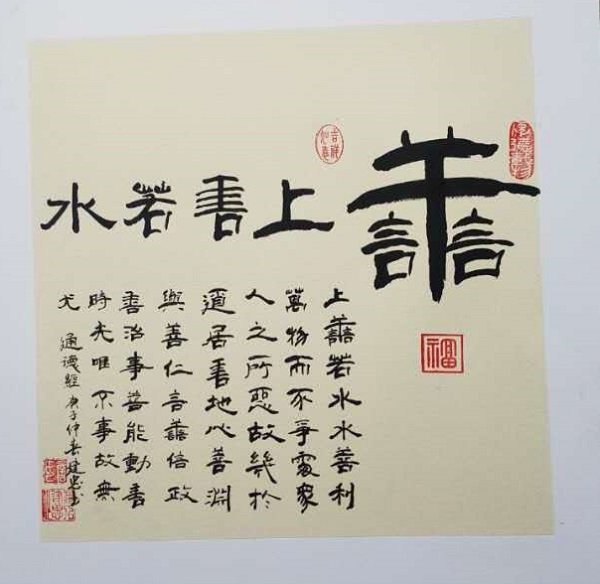 譱
上善若水
上譱若水水善利
萬物而不爭處眾
人之所惡故幾於
道居善地心善淵
與善仁言譱信政
善治事善能動善
時夫唯不爭故無
尤 道德經 庚子仲春建忠書
吉祥如意
福